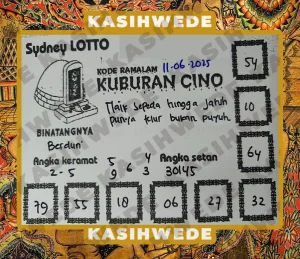 KASIHWEDE
Sydney LOTTO
KODE RAMALAN 11-06-2025
KUBURAN CINO
54
Naik sepeda hingga jatuh
punya telur bukan puyuh
10
BINATANGNYA
Berduri
Angka keramat 5 4 Angka setan
2-5 9 6 3 30145
64
79 55 18 06 27 32
KASIHWEDE